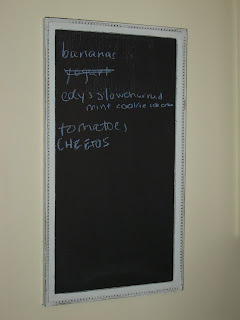 bananas
yogurt
edy's slowchurned
mint cookie
tomatoes
CHEETOS